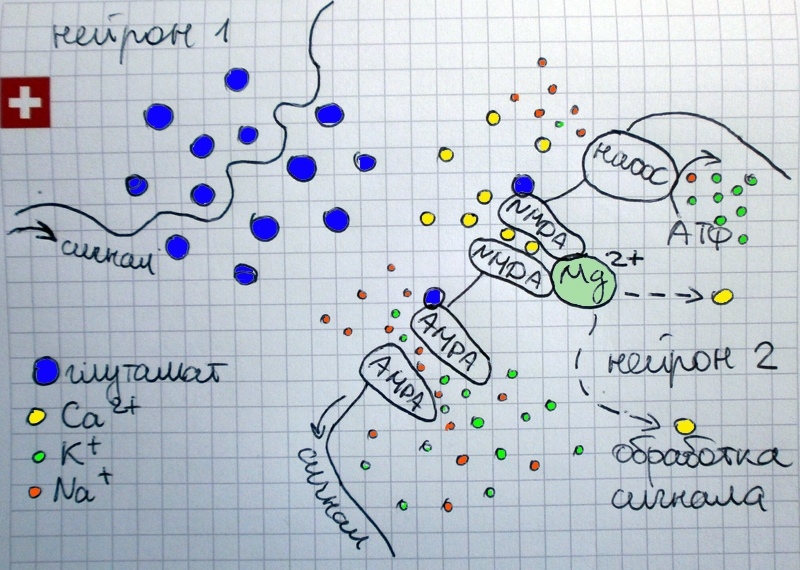 нейрон 1
насос
NMDA
АТФ
сигнал
NMDA
Mg 2+
AMPA
нейрон 2
глутамат
AMPA
Ca 2+
K+
обработка
сигнала
Na+
сигнал